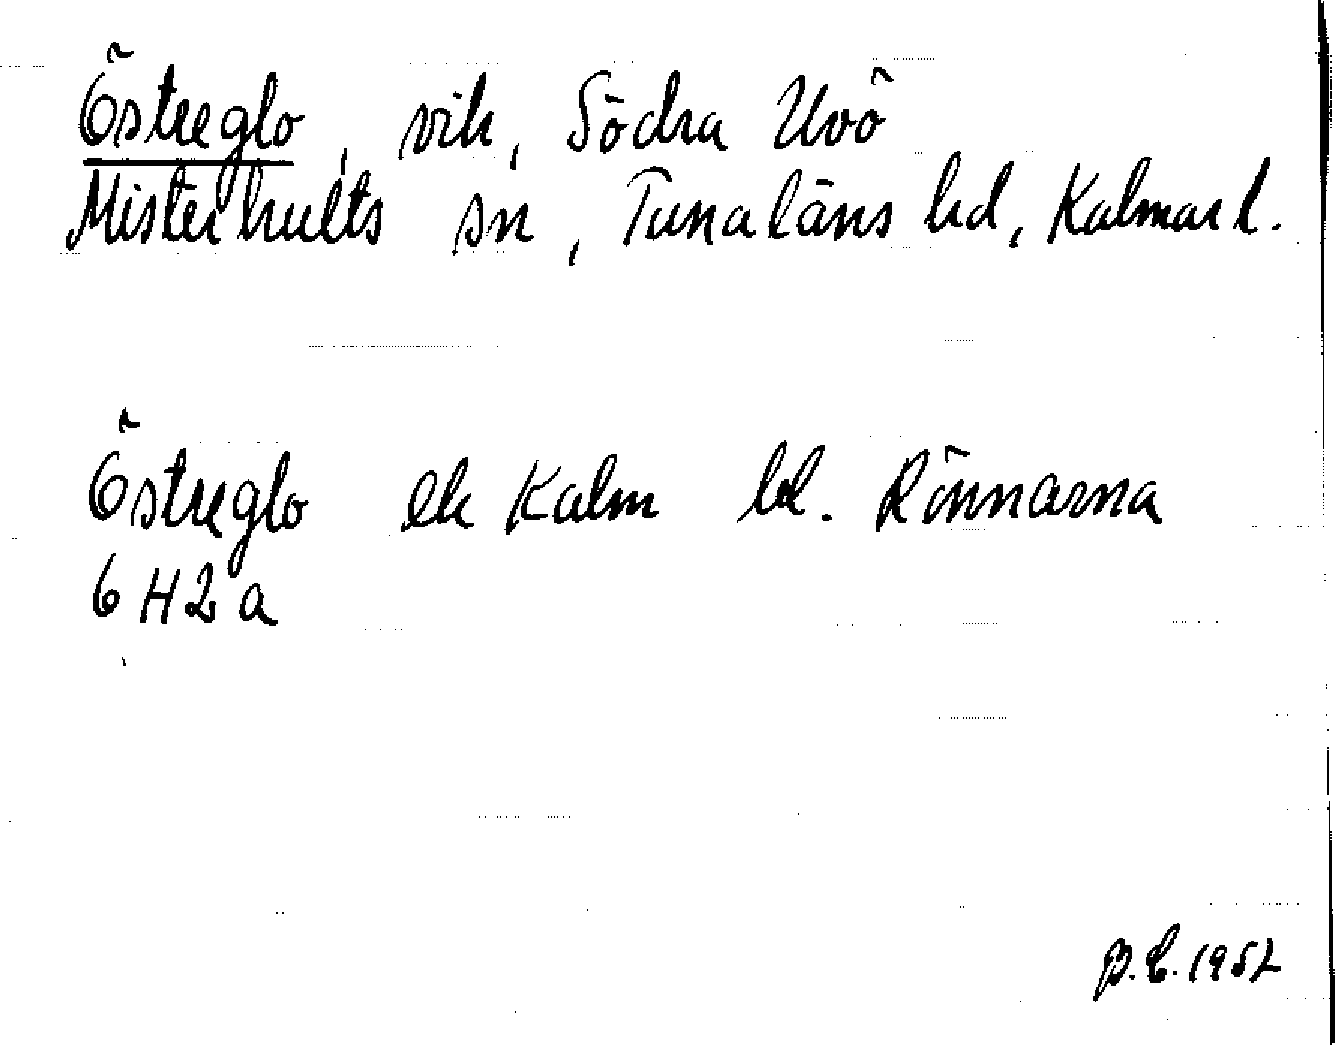 Östreglo, vik, Södra Uvö
Misterhults sn, Tunaläns hd, Kalmar l.
Östreglo ek Kalm bl. Rönnarna
6 H 2 a
B.E. 1952